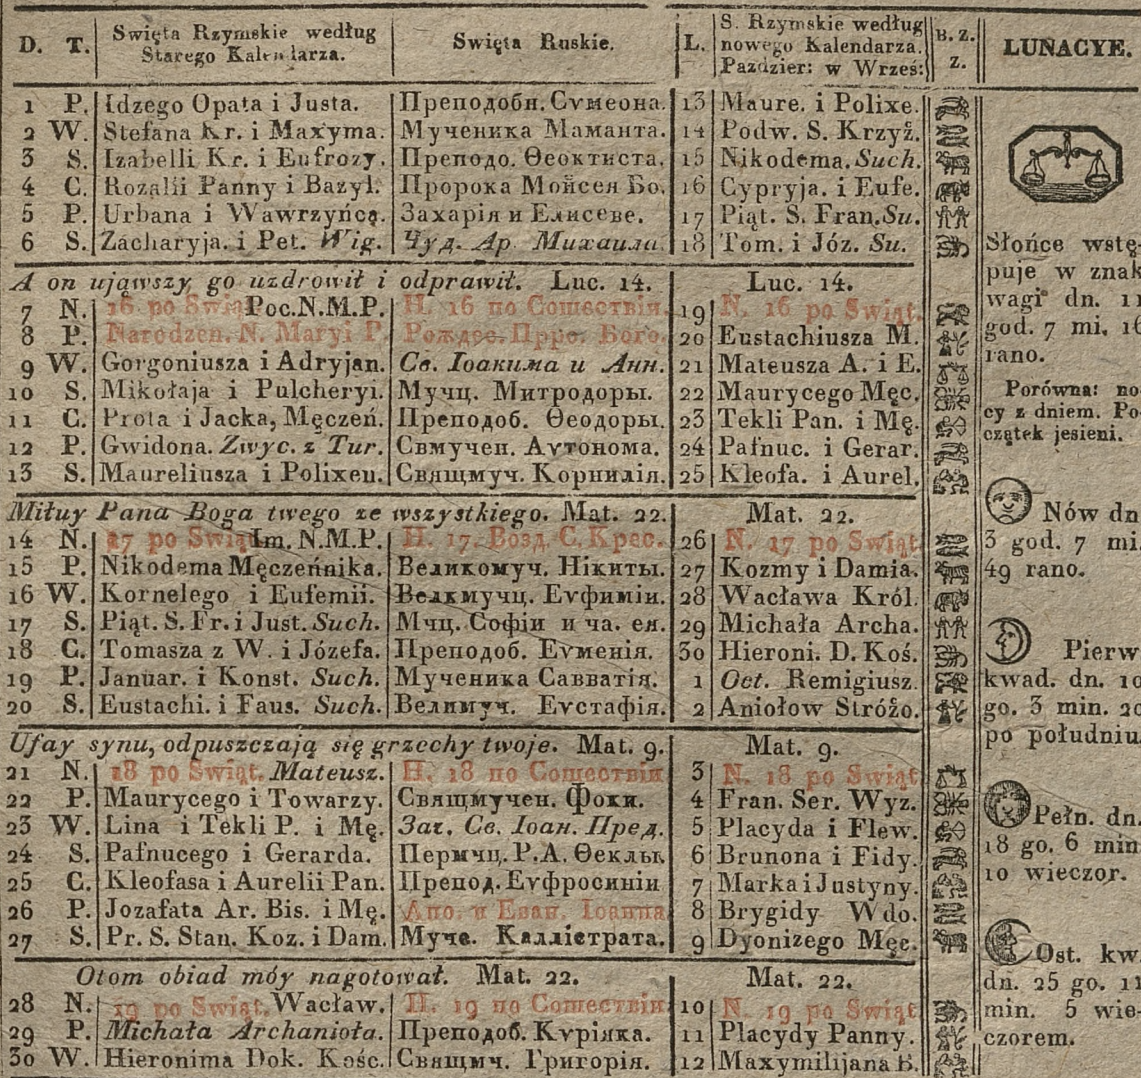 D. T. Swięta Rzymskie według Starego Kalendarza. Swięta Ruskie. L. S. Rzymskie według nowego Kalendarza. Pazdzier: w Wrześ: B. Z. Z. LUNACYE.
1 P. Idzego Opata i Justa. Преподобн. Сѵмеона. 13 Maure. i Polixe.
2 W. Stefana Kr. i Maxyma. Мученика Маманта. 14 Podw. S. Krzyż.
3 S. Izabelli Kr. i Eufrozy. Преподо. Ѳеоктиста. 15 Nikodema. Such.
4 C. Rozalii Panny i Bazyl. Пророка Мойсея Бо. 16 Cypryja. i Eufe.
5 P. Urbana i Wawrzyńcą. Захарія и Елисеве. 17 Piąt. S. Fran. Su.
6 S. Zacharyja. i Pet. Wig. Чуд. Ар. Михаила. 18 Tom. i Józ. Su.
A on ująwszy go uzdrowił i odprawił. Luc. 14. Luc. 14.
7 N. 16 po Swiąt. Poc. N.M.P. Н. 16 по Сошествіи. 19 N. 16 po Swiąt.
8 P. Narodzen. N. Maryi P. Рождес. Прро. Бого. 20 Eustachiusza M.
9 W. Gorgoniusza i Adryjan. Св. Іоакима и Анн. 21 Mateusza A. i E.
10 S. Mikołaja i Pulcheryi. Мучц. Митродоры. 22 Maurycego Męc.
11 C. Prota i Jacka, Męczeń. Преподоб. Ѳеодоры. 23 Tekli Pan. i Mę.
12 P. Gwidona. Zwyc. z Tur. Свмучен. Аѵтонома. 24 Pafnuc. i Gerar.
13 S. Maureliusza i Polixen. Свящмуч. Корнилія. 25 Kleofa. i Aurel.
Miłuy Pana Boga twego ze wszystkiego. Mat. 22. Mat. 22.
14 N. 17 po Swiąt. Im. N.M.P. Н. 17. Возд. С. Крес. 26 N. 17 po Swiąt.
15 P. Nikodema Męczeńnika. Великомуч. Нікиты. 27 Kozmy i Damia.
16 W. Kornelego i Eufemii. Велкмучц. Еѵфиміи. 28 Wacława Król.
17 S. Piąt. S. Fr. i Just. Such. Мчц. Софіи и ча. ея. 29 Michała Archa.
18 C. Tomasza z W. i Józefa. Преподоб. Еѵменія. 30 Hieroni. D. Koś.
19 P. Januar. i Konst. Such. Мученика Савватія. 1 Oct. Remigiusz.
20 S. Eustachi. i Faus. Such. Велимуч. Еѵстафія. 2 Aniołow Stróżo.
Ufay synu, odpuszczają się grzechy twoje. Mat. 9. Mat. 9.
21 N. 18 po Swiąt. Mateusz. Н. 18 по Сошествіи 3 N. 18 po Swiąt
22 P. Maurycego i Towarzy. Свящмучен. Фоки. 4 Fran. Ser. Wyz.
23 W. Lina i Tekli P. i Mę. Зач. Св. Іоан. Пред. 5 Placyda i Flew.
24 S. Pafnucego i Gerarda. Пермчц. Р.А. Ѳеклы 6 Brunona i Fidy.
25 C. Kleofasa i Aurelii Pan. Препод. Еѵфросиніи 7 Marka i Justyny.
26 P. Jozafata Ar. Bis. i Mę. Апо. и Еван. Іоанна 8 Brygidy Wdo.
27 S. Pr. S. Stan. Koz. i Dam. Муче. Каллістрата. 9 Dyonizego Męc.
Otom obiad móy nagotował. Mat. 22. Mat. 22.
28 N. 19 po Swiąt. Wacław. Н. 19 по Сошествіи 10 N. 19 po Swiąt
29 P. Michała Archanioła. Преподоб. Кѵріяка. 11 Placydy Panny.
30 W. Hieronima Dok. Kośc. Свящмч. Григорія. 12 Maxymilijana B.
Słońce wstę-
puje w znak
wagi dn. 11
god. 7 mi. 16
rano.
Porówna: no-
cy z dniem. Po-
czątek jesieni.
Nów dn
3 god. 7 mi.
49 rano.
Pierw
kwad. dn. 10
go. 3 min. 20
po południu.
Pełn. dn.
18 go. 6 min
10 wieczor.
Ost. kw.
dn. 25 go. 11
min. 5 wie-
czorem.